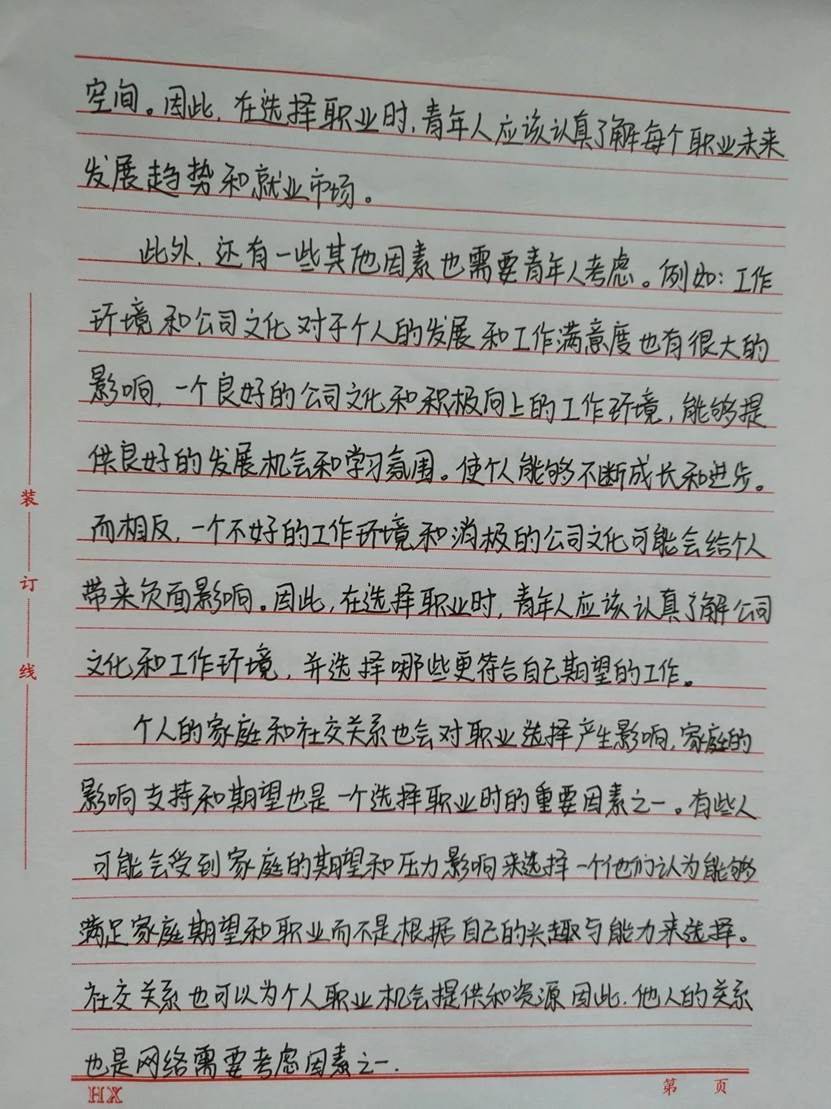 空间。因此,在选择职业时,青年人应该认真了解每个职业未来
发展趋势和就业市场。
此外,还有一些其他因素也需要青年人考虑。例如:工作
环境和公司文化对于个人的发展和工作满意度也有很大的
影响,一个良好的公司文化和积极向上的工作环境,能够提
供良好的发展机会和学习氛围。使个人能够不断成长和进步。
而相反,一个不好的工作环境和消极的公司文化可能会给个人
带来负面影响。因此,在选择职业时,青年人应该认真了解公司
文化和工作环境,并选择哪些更符合自己期望的工作。
个人的家庭和社交关系也会对职业选择产生影响,家庭的
影响支持和期望也是一个选择职业时的重要因素之一。有些人
可能会受到家庭的期望和压力影响来选择一个他们认为能够
满足家庭期望和职业而不是根据自己的兴趣与能力来选择。
社交关系也可以为个人职业机会提供和资源因此.他人的关系
也是网络需要考虑因素之一.
装
订
线
HX
第 页